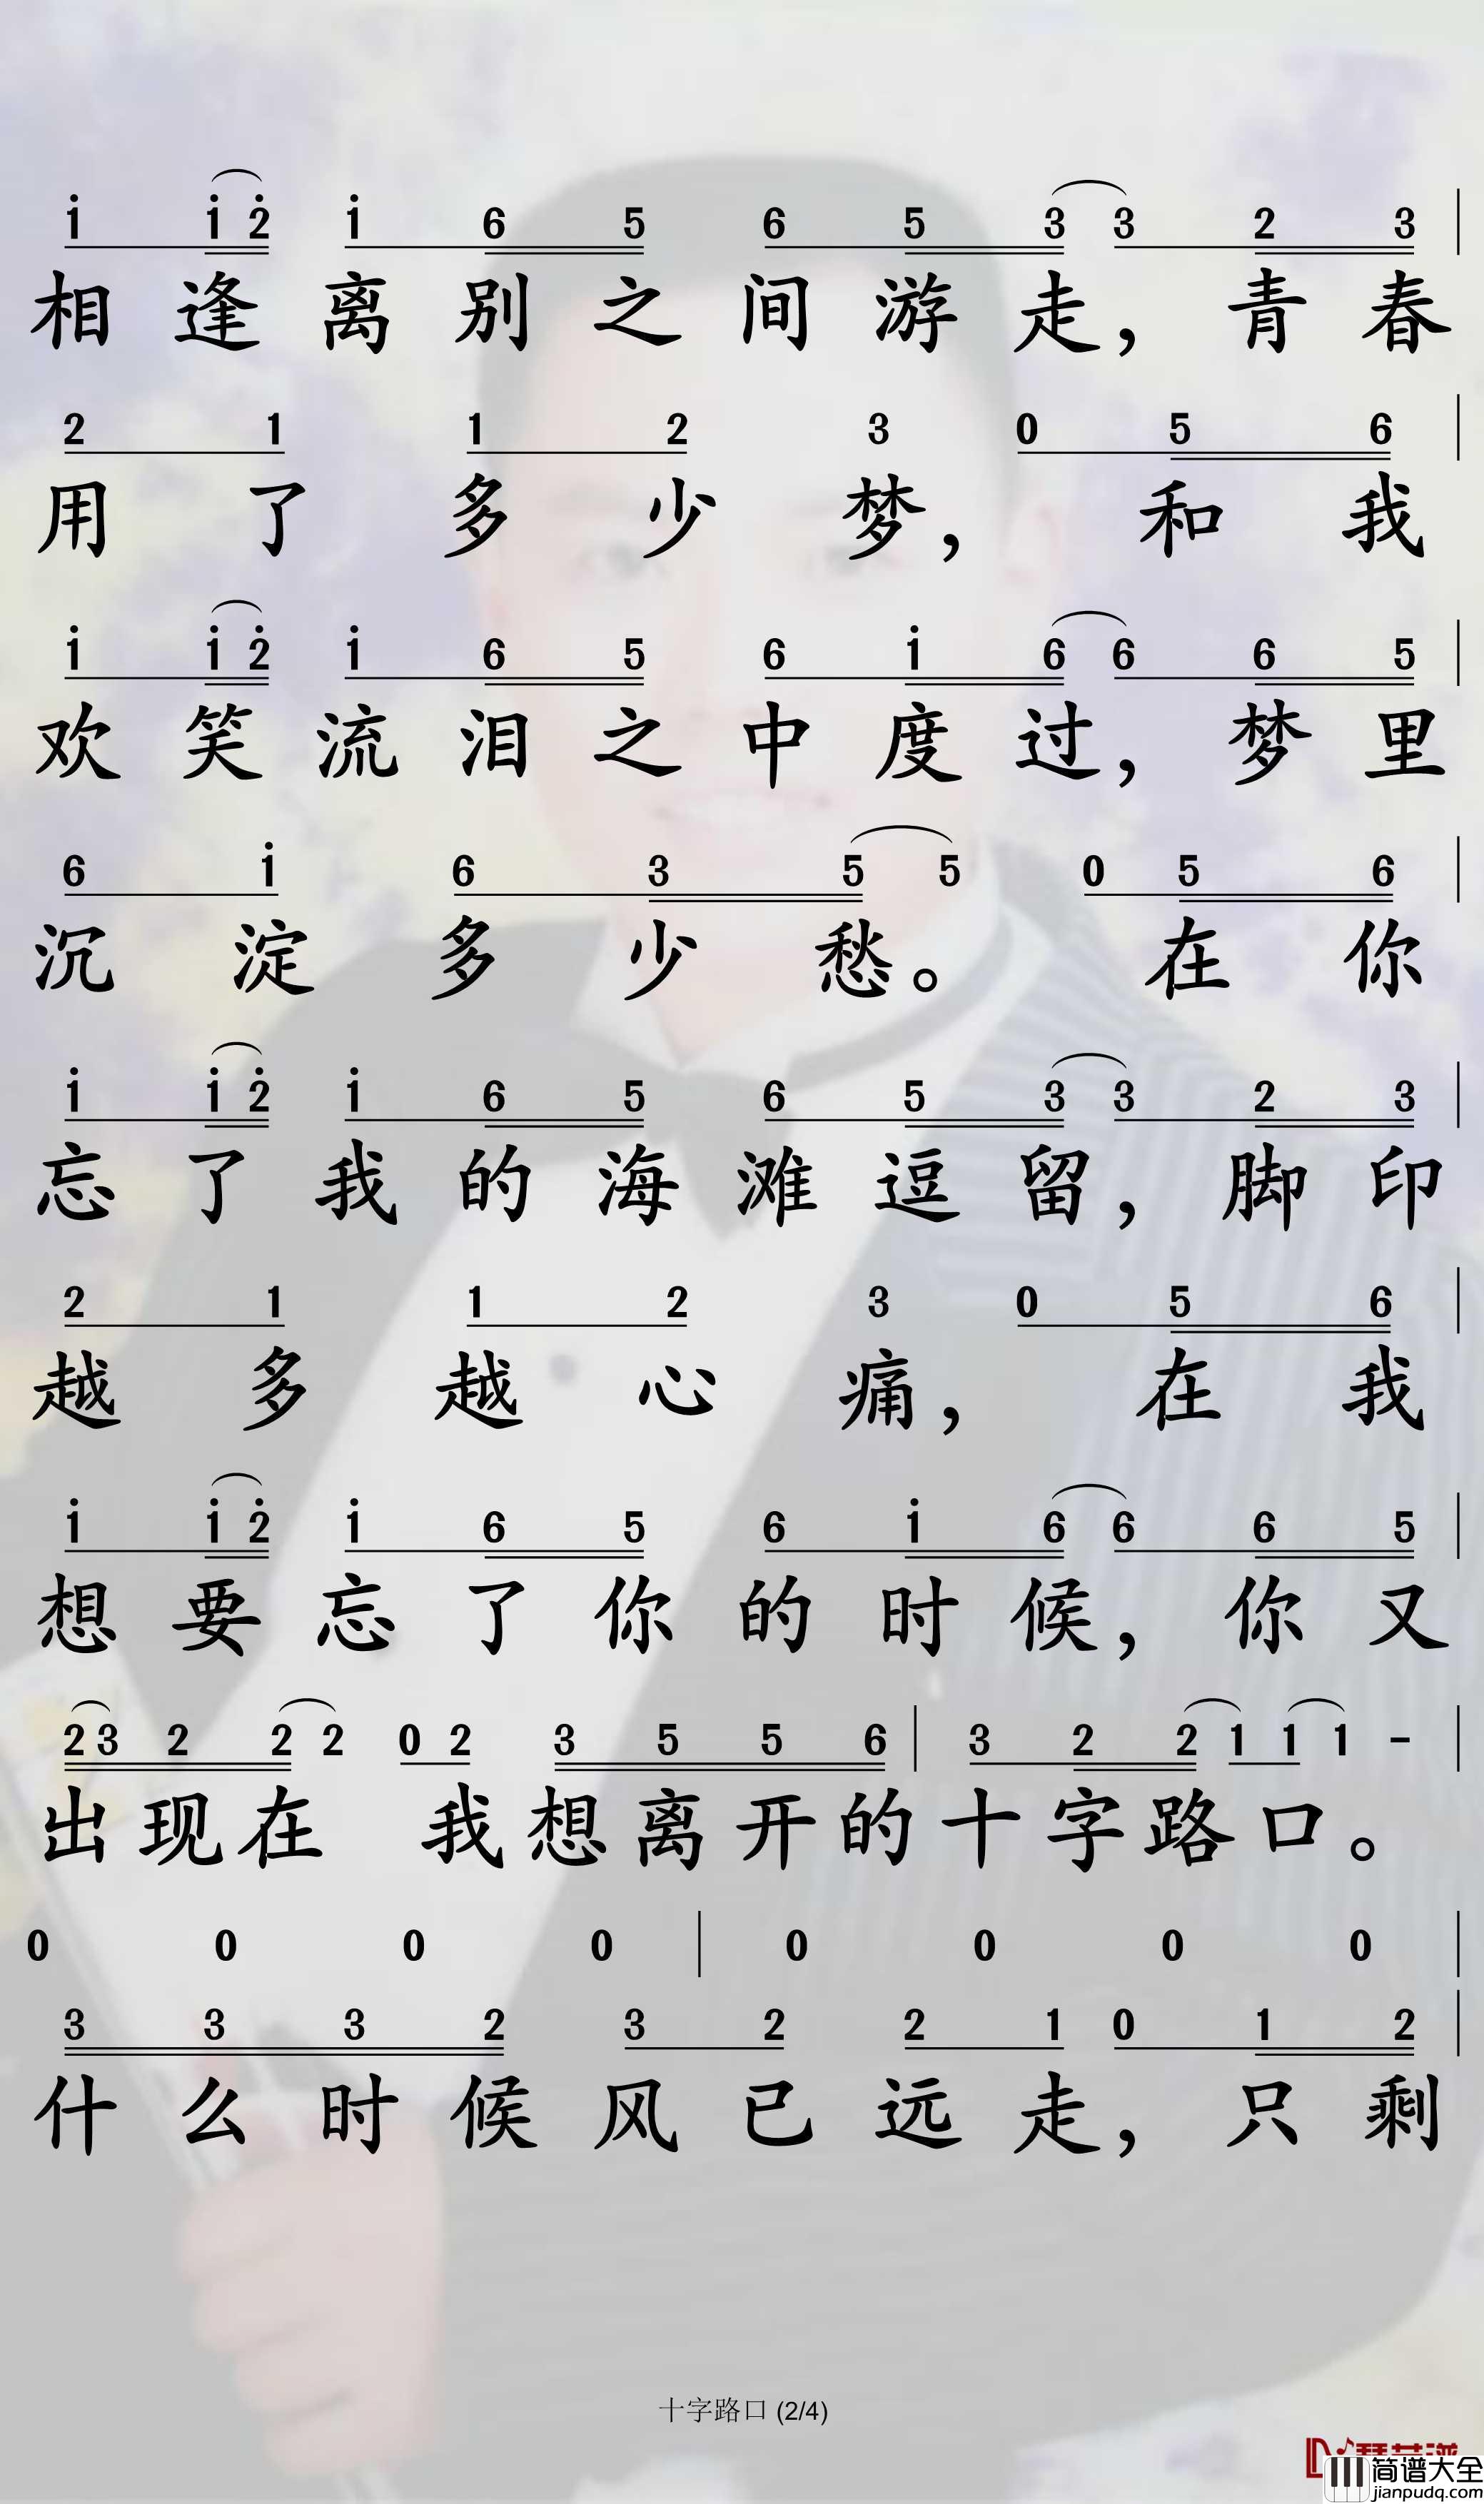 1 1 2 1 6 5 6 5 3 3 2 3
相逢离别之间游走，青春
2 1 1 2 3 0 5 6
用了多少梦，和我
1 1 2 1 6 5 6 1 6 6 6 5
欢笑流泪之中度过，梦里
6 1 6 3 5 5 0 5 6
沉淀多少愁。在你
1 1 2 1 6 5 6 5 3 3 2 3
忘了我的海滩逗留，脚印
2 1 1 2 3 0 5 6
越多越心痛，在我
1 1 2 1 6 5 6 1 6 6 6 5
想要忘了你的时候，你又
2 3 2 2 2 0 2 3 5 5 6 | 3 2 2 1 1 1 -
出现在我想离开的十字路口。
0 0 0 0 | 0 0 0 0
3 3 3 2 3 2 2 1 0 1 2
什么时候风已远走，只剩
十字路口 (2/4)
简谱大全
jianpudq.com